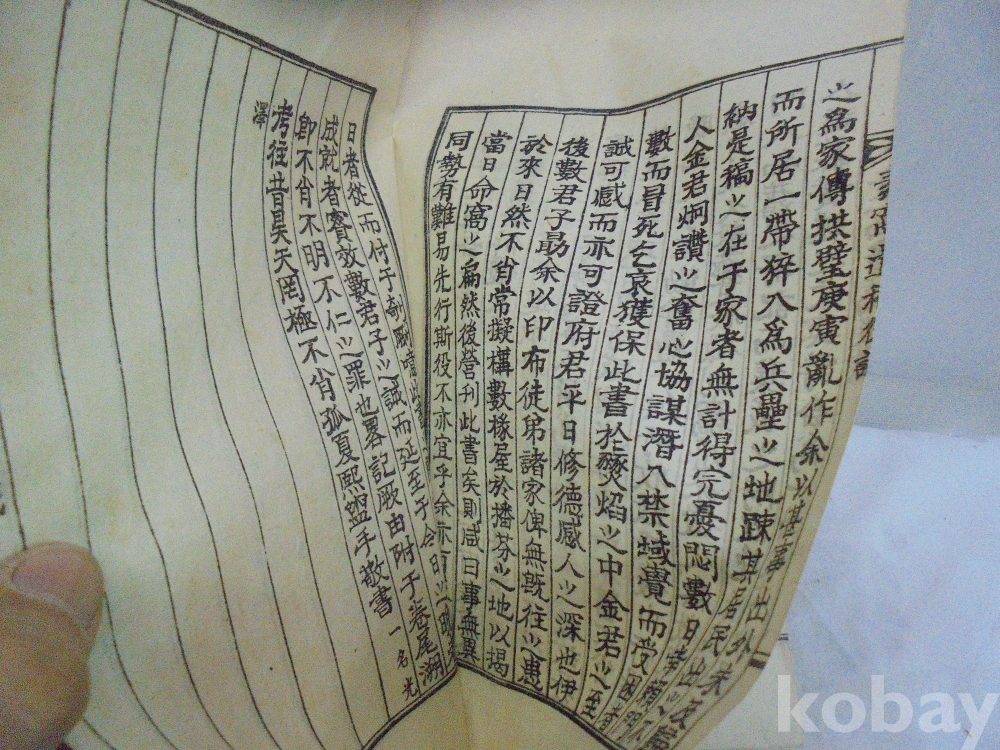 之爲家傳拱璧庚寅亂作余以某事出外
而所居一帶猝入爲兵壘之地疎其居民未
納是稿之在于家者無計得完憂悶數日
人金君炯讚之奮心協謀潛入禁域覺而受
數而冒死乞哀獲保此書於豩焰之中金君之至
誠可感而亦可證府君平日修德感人之深也伊
後數君子勗余以印布徒弟諸家俾無既往之患
於來日然不肖常擬構數椽屋於播芬之地以揭
當日命窩之扁然後營刊此書矣則咸曰事無異
同勢有難易先行斯役不亦宜乎余亦
日者從而付于剞劂
成就者實效數君子之誠而延至于今
卽不肖不明不仁之罪也畧記厥由附于卷尾溯
考往昔昊天罔極不肖孤夏熙盥手敬書 一名光
澤
kobay